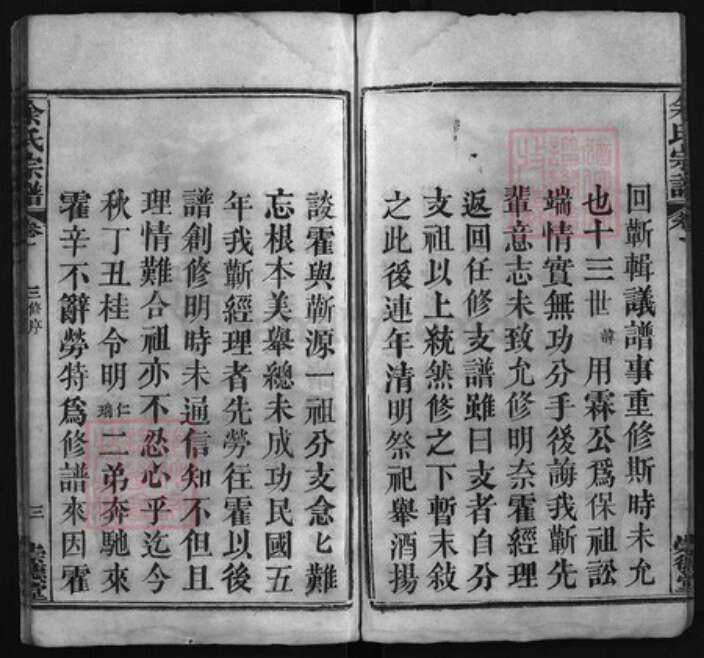 余氏宗譜 卷一
回蘄輯議譜事重修斯時未允
也十三世諱用霖公爲保祖訟
端情實無功分手後誨我蘄先
輩意志未致允修明奈霍經理
返回任修支譜雖曰支者自分
支祖以上統然修之下暫末敍
之此後連年清明祭祀舉酒揚
談霍與蘄源一祖分支念匕難
忘根本美舉總未成功民國五
年我蘄經理者先勞往霍以後
譜創修明時未通信知不但且
理情難合祖亦不忍心乎迄今
秋丁丑桂令明仁瑞二弟奔馳來
霍辛不辭勞特爲修譜來因霍
余氏宗譜 卷一 三修序 三